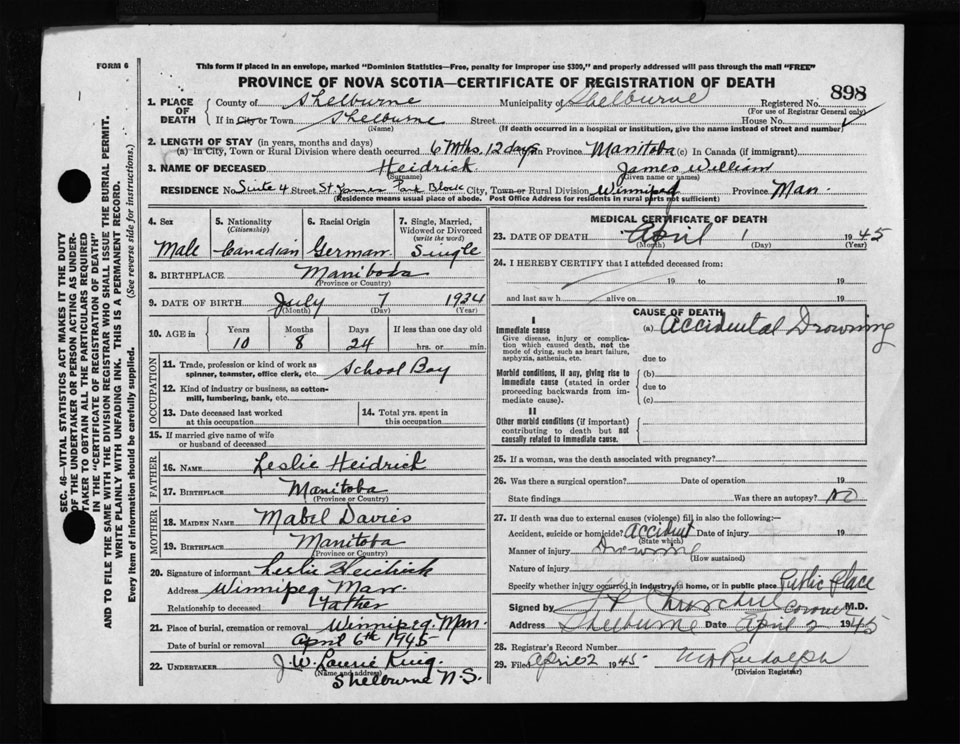 FORM 6
This form if placed in an envelope, marked "Dominion Statistics—Free, penalty for improper use $300," and properly addressed will pass through the mail "FREE"
PROVINCE OF NOVA SCOTIA—CERTIFICATE OF REGISTRATION OF DEATH
898
1. PLACE OF DEATH
County of Shelburne Municipality of Shelburne Registered No.
(For use of Registrar General only)
If in City or Town Shelburne Street House No.
(Name) (If death occurred in a hospital or institution, give the name instead of street and number)
2. LENGTH OF STAY (in years, months and days)
(a) In City, Town or Rural Division where death occurred 6 Mths. 12 days In Province Manitoba (c) In Canada (if immigrant)
3. NAME OF DECEASED Heidrick James William
(Surname) (Given name or names)
RESIDENCE No Suite 4 Street St James Park Block City, Town or Rural Division Winnipeg Province Man.
(Residence means usual place of abode. Post Office Address for residents in rural parts not sufficient)
4. Sex
Male
5. Nationality
(Citizenship)
Canadian
6. Racial Origin
German
7. Single, Married, Widowed or Divorced
(write the word)
Single
8. BIRTHPLACE Manitoba
(Province or Country)
9. DATE OF BIRTH July 7 1934
(Month) (Day) (Year)
10. AGE in Years Months Days If less than one day old
10 8 24 hrs. or min.
OCCUPATION
11. Trade, profession or kind of work as spinner, teamster, office clerk, etc. School Boy
12. Kind of industry or business, as cotton-mill, lumbering, bank, etc.
13. Date deceased last worked at this occupation
14. Total yrs. spent in this occupation
15. If married give name of wife or husband of deceased
FATHER
16. NAME Leslie Heidrick
17. BIRTHPLACE Manitoba
(Province or Country)
MOTHER
18. MAIDEN NAME Mabel Davies
19. BIRTHPLACE Manitoba
(Province or Country)
20. Signature of informant Leslie Heidrick
Address Winnipeg Man.
Relationship to deceased Father
21. Place of burial, cremation or removal Winnipeg. Man.
Date of burial or removal April 6th 1945
22. UNDERTAKER J.W. Laurie King.
(Name and address)
Shelburne N.S.
MEDICAL CERTIFICATE OF DEATH
23. DATE OF DEATH April 1 1945
(Month) (Day) (Year)
24. I HEREBY CERTIFY that I attended deceased from:
19 to 19
and last saw h alive on 19
CAUSE OF DEATH
I
Immediate cause (a) Accidental Drowning
Give disease, injury or complication which caused death, not the mode of dying, such as heart failure, asphyxia, asthenia, etc.
due to
Morbid conditions, if any, giving rise to immediate cause (stated in order proceeding backwards from immediate cause).
(b)
due to
(c)
II
Other morbid conditions (if important) contributing to death but not causally related to immediate cause.
25. If a woman, was the death associated with pregnancy?
26. Was there a surgical operation? Date of operation 19
State findings Was there an autopsy? NO
27. If death was due to external causes (violence) fill in also the following:—
Accident, suicide or homicide? Accident Date of injury 19
(State which)
Manner of injury Drowning
(How sustained)
Nature of injury
Specify whether injury occurred in industry, in home, or in public place Public Place
Signed by Churchill Coroner M.D.
Address Shelburne Date April 2 1945
28. Registrar's Record Number
29. Filed April 2 1945 Rudolph
(Division Registrar)
SEC. 46—VITAL STATISTICS ACT MAKES IT THE DUTY
OF THE UNDERTAKER OR PERSON ACTING AS UNDER-
TAKER TO OBTAIN ALL THE PARTICULARS REQUIRED
IN THE "CERTIFICATE OF REGISTRATION OF DEATH"
AND TO FILE THE SAME WITH THE DIVISION REGISTRAR WHO SHALL ISSUE THE BURIAL PERMIT.
WRITE PLAINLY WITH UNFADING INK. THIS IS A PERMANENT RECORD.
Every item of information should be carefully supplied. (See reverse side for instructions.)